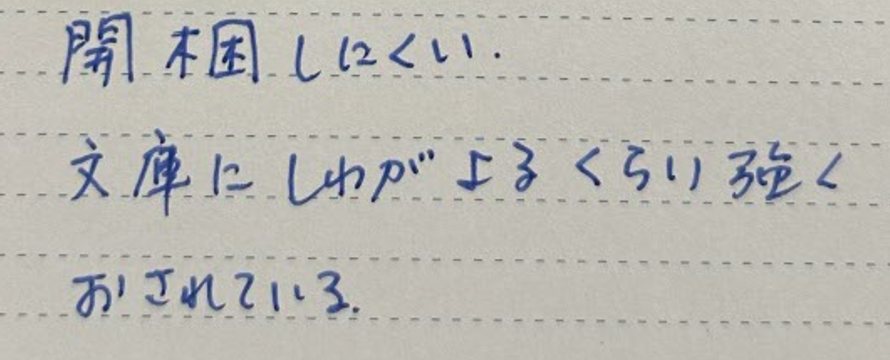 開梱しにくい.
文庫にしわがよるくらい強く
おされている.